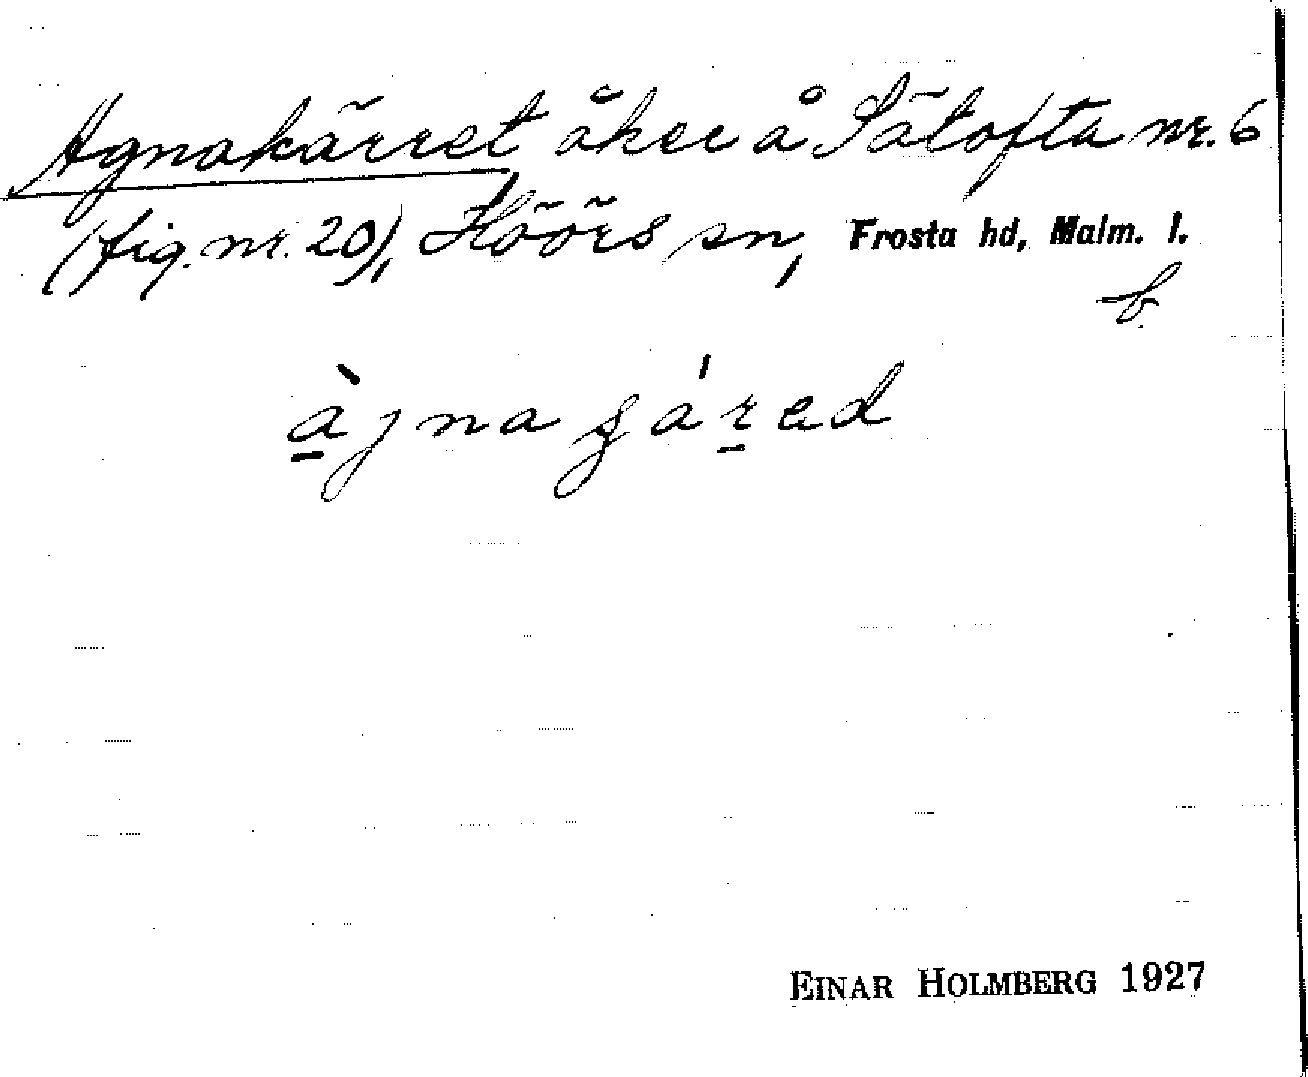 Agnakärret åker å Sätofta nr. 6
(fig. nr. 20), Höörs sn, Frosta hd, Malm. l.
b.
àjna gárad
EINAR HOLMBERG 1927